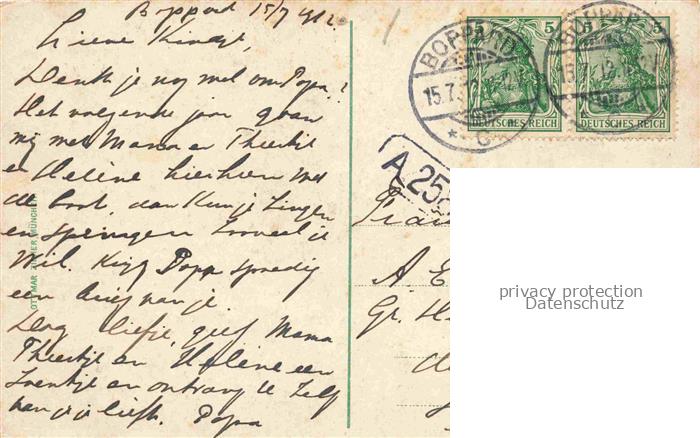 Boppard 15/7 1912
Lieve Kindje,
Denk je nog wel om Papa?
Het volgende jaar gaan
wij met Mama en Theertje
en Helène hierheen met
de boot, dan kun je zingen
en springen zooveel je
wil. Krijgt Papa spoedig
een brief van je.
Dag liefje, geef Mama
Theertje en Helène een
zoentje en ontvang te zelf
van je je liefh. Papa
BOPPARD
15.7.
* C
5 5
DEUTSCHES REICH
BOPPARD
5 5
DEUTSCHES REICH
A 25
A. E
Gr. H
OTTMAR ZIEHER MÜNCHEN
privacy protection
Datenschutz